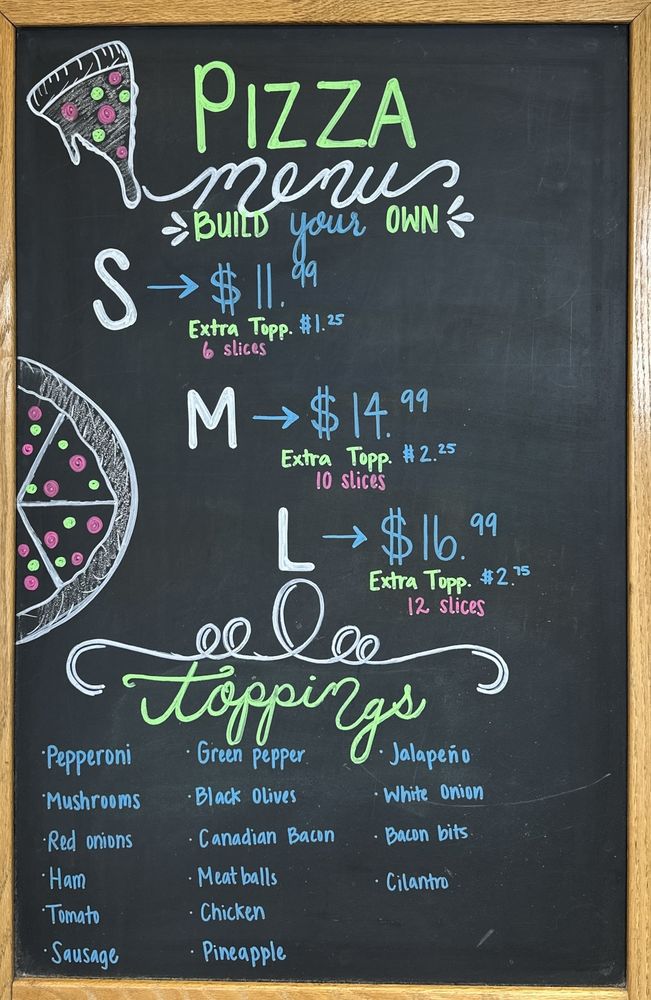 PIZZA
menu
BUILD your OWN
S → $11.99
Extra Topp. $1.25
6 slices
M → $14.99
Extra Topp. $2.25
10 slices
L → $16.99
Extra Topp. $2.75
12 slices
toppings
· Pepperoni
· Mushrooms
· Red onions
· Ham
· Tomato
· Sausage
· Green pepper
· Black Olives
· Canadian Bacon
· Meatballs
· Chicken
· Pineapple
· Jalapeño
· White Onion
· Bacon bits
· Cilantro